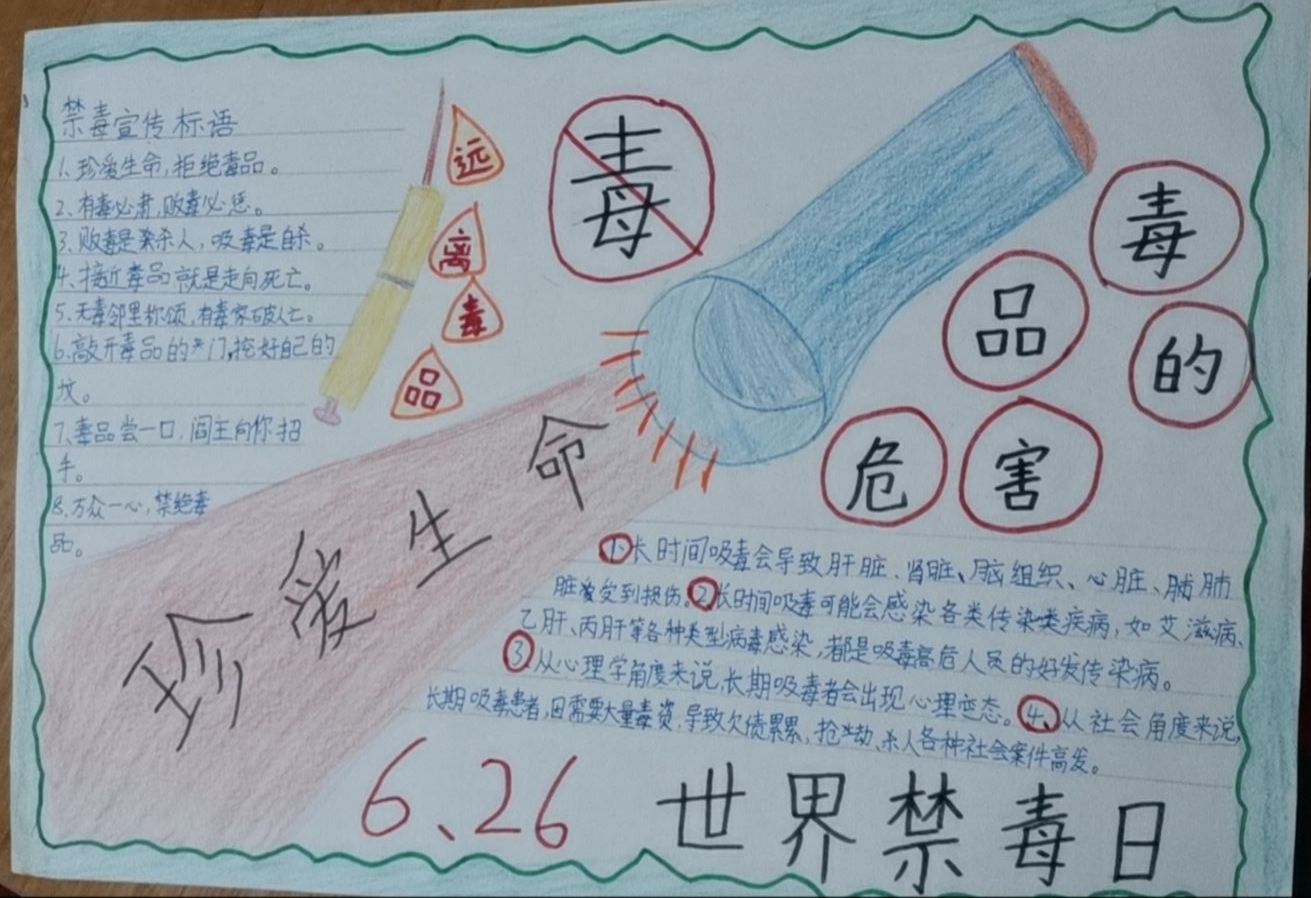 禁毒宣传标语
1、珍爱生命,拒绝毒品。
2、有毒必肃,贩毒必惩。
3、贩毒是杀人,吸毒是自杀。
4、接近毒品就是走向死亡。
5、无毒邻里称颂,有毒家破人亡。
6、敲开毒品的门,挖好自己的
坟。
7、毒品尝一口,阎王向你招
手。
8、万众一心,禁绝毒
品。
远
离
毒
品
毒
毒
品
的
危
害
珍爱生命
①长时间吸毒会导致肝脏、肾脏、脑组织、心脏、肺
脏受到损伤。②长时间吸毒可能会感染各类传染类疾病,如艾滋病、
乙肝、丙肝等各种类型病毒感染,都是吸毒高危人员的好发传染病。
③从心理学角度来说,长期吸毒者会出现心理变态。④、从社会角度来说,
长期吸毒患者,因需要大量毒资,导致欠债累累,抢劫、杀人各种社会案件高发。
6、26 世界禁毒日